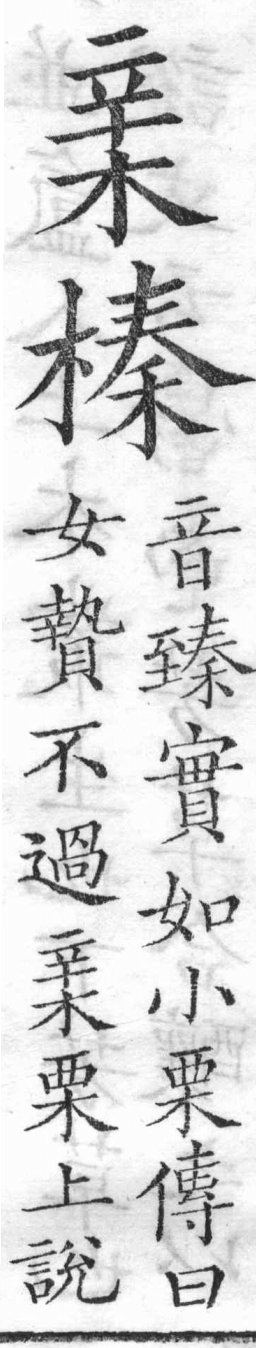 亲榛
音臻實如小栗傳曰
女贄不過亲栗上說